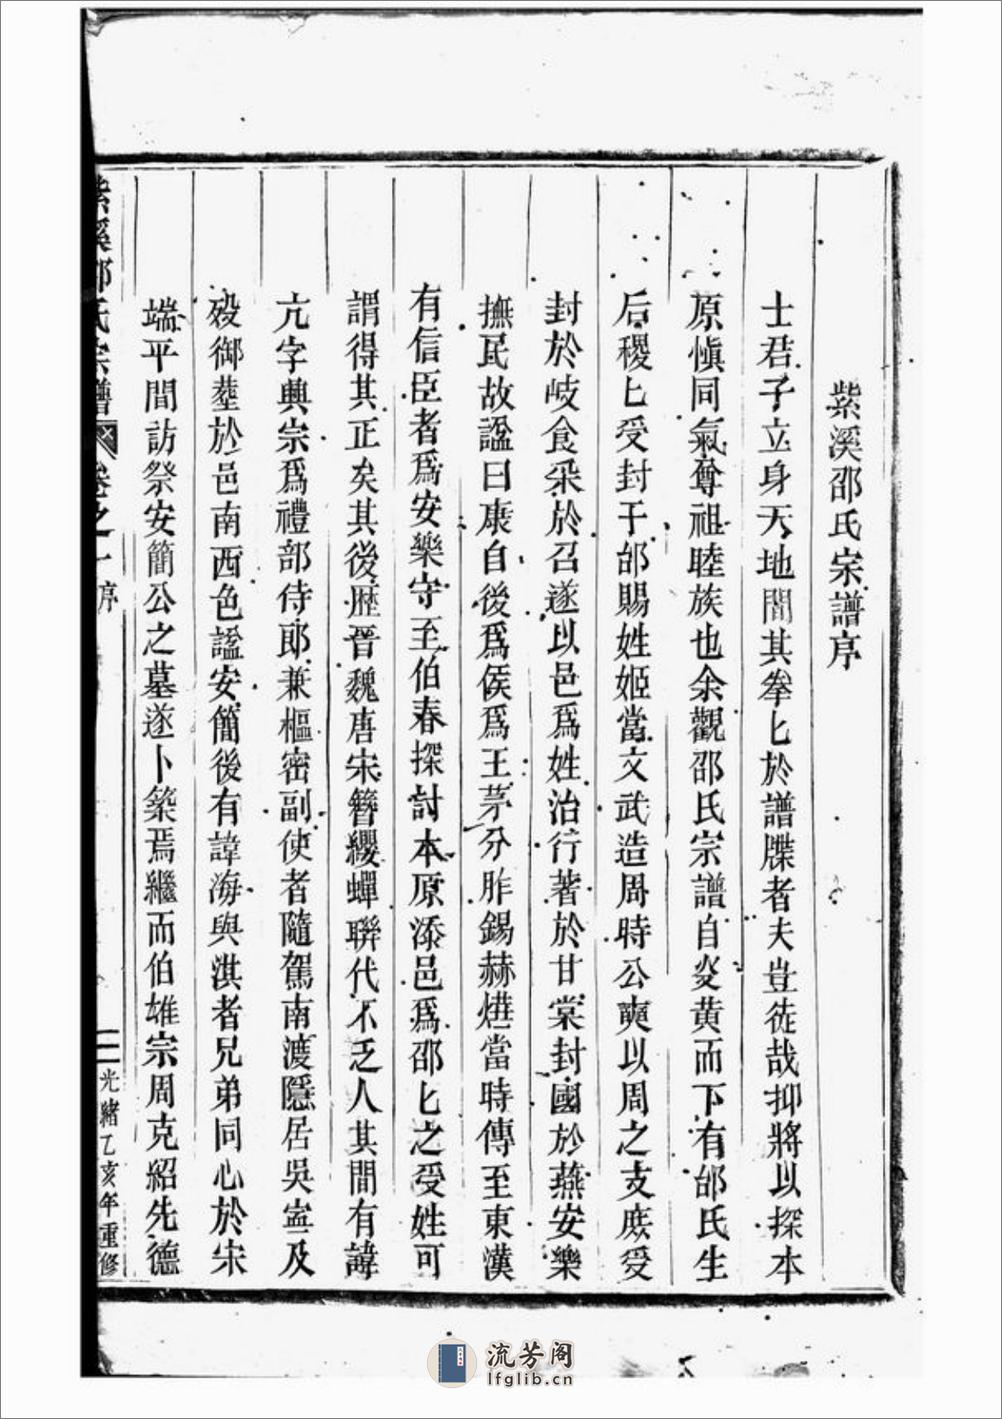 紫溪邵氏宗譜序
士君子立身天地間其拳匕於譜牒者夫豈徒哉抑將以探本
原愼同氣尊祖睦族也余觀邵氏宗譜自炎黄而下有邰氏生
后稷匕受封于邰賜姓姬當文武造周時公奭以周之支庶受
封於岐食采於召遂以邑爲姓治行著於甘棠封國於燕安樂
撫民故謚曰康自後爲侯爲王茅分胙錫赫燁當時傳至東漢
有信臣者爲安樂守至伯春探討本原添邑爲邵匕之受姓可
謂得其正矣其後歷晉魏唐宋簪纓蟬聯代不乏人其間有諱
亢字興宗爲禮部侍郎兼樞密副使者隨駕南渡隱居吳寍及
殁御塟於邑南西色謚安簡後有諱海與淇者兄弟同心於宋
端平間訪祭安簡公之墓遂卜築焉繼而伯雄宗周克紹先德
紫溪邵氏宗譜 卷之一 序 二 光緖乙亥年重修
流芳阁
lfglib.cn